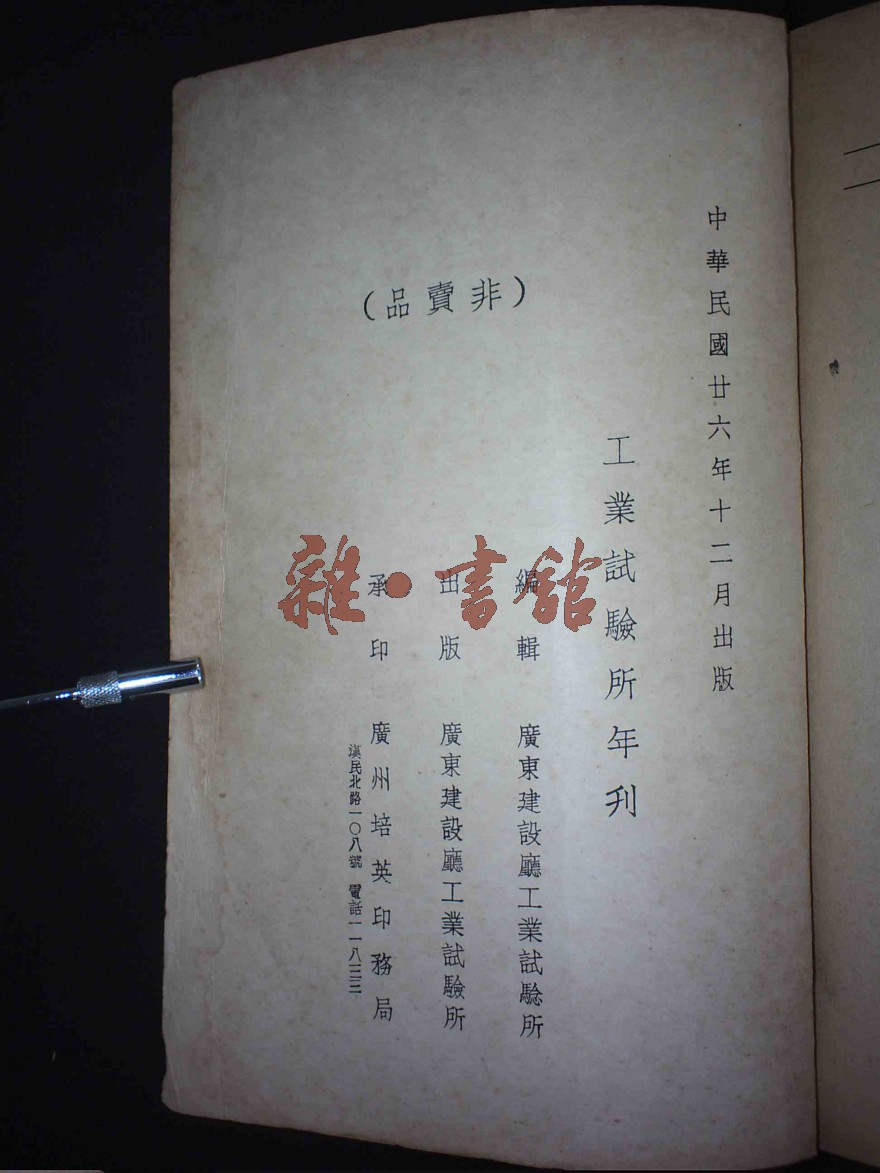 中華民國廿六年十二月出版
工業試驗所年刋
（非賣品）
編輯 廣東建設廳工業試驗所
出版 廣東建設廳工業試驗所
承印 廣州培英印務局
漢民北路一〇八號 電話一一八三三
雜·書館